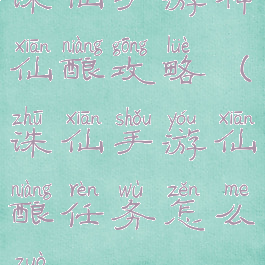 诛仙手游神
xiān niàng gōng luè
仙酿攻略（
zhū xiān shǒu yóu xiān
诛仙手游仙
niàng rèn wù zěn me
酿任务怎么
zuò